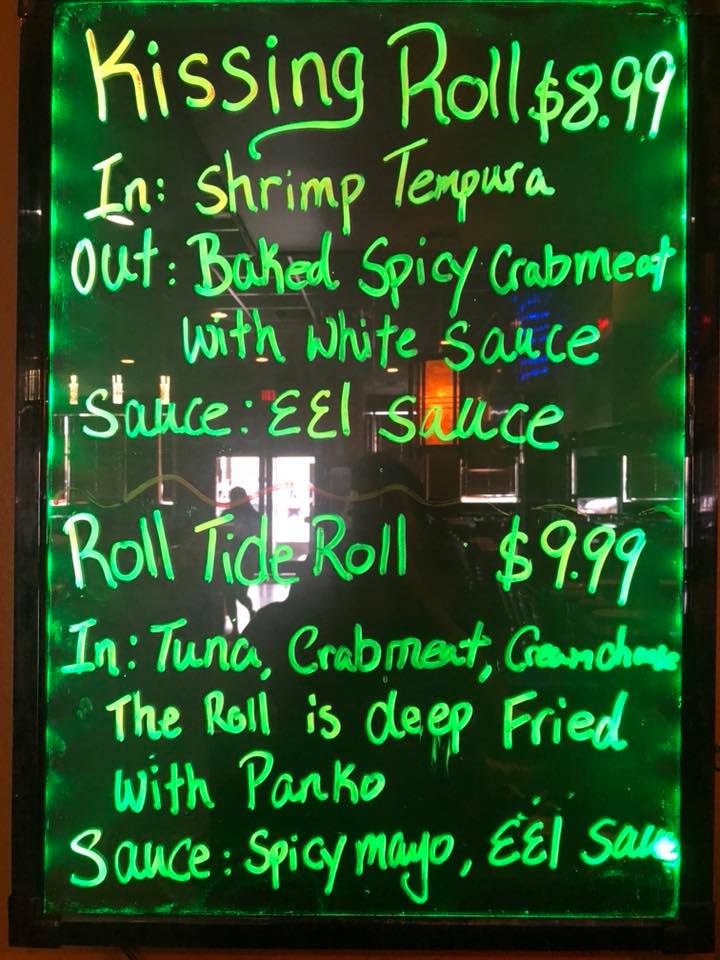 Kissing Roll $8.99
In: Shrimp Tempura
Out: Baked Spicy Crabmeat
with white sauce
Sauce: EEl sauce
Roll Tide Roll $9.99
In: Tuna, Crabmeat, Creamcheese
The Roll is deep Fried
with Panko
Sauce: Spicy mayo, EEl Sauce